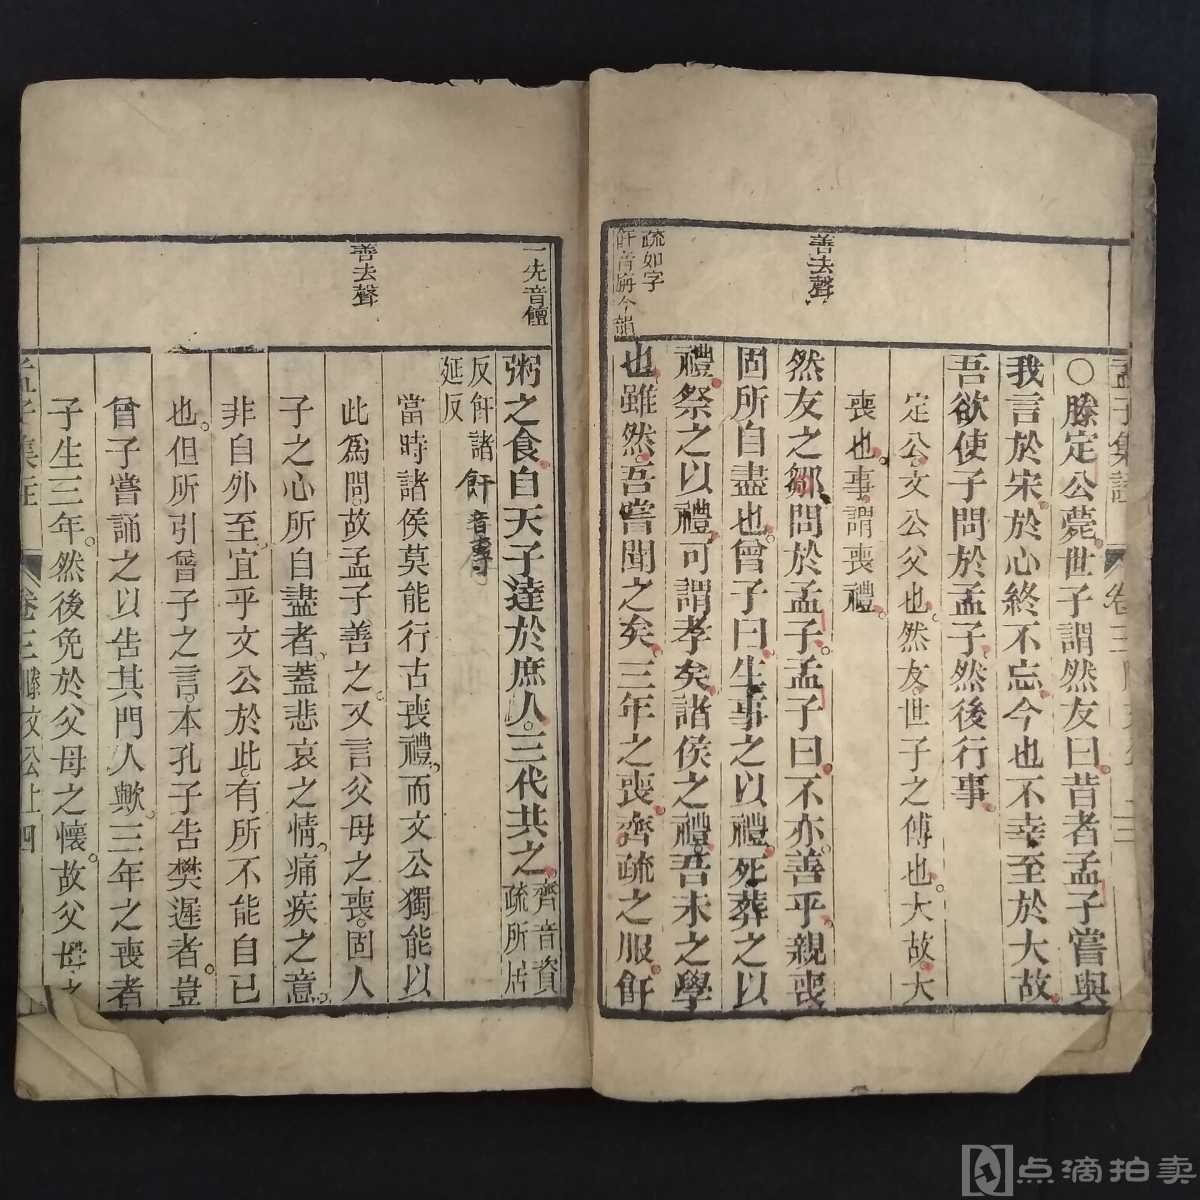 孟子集註
卷三
善去聲
疏如字
○滕定公薨。世子謂然友曰。昔者孟子嘗與
我言於宋。於心終不忘。今也不幸至於大故。
吾欲使子問於孟子。然後行事。
定公。文公父也。然友。世子之傅也。大故。大
喪也。事。謂喪禮。
然友之鄒。問於孟子。孟子曰。不亦善乎。親喪
固所自盡也。曾子曰。生事之以禮。死葬之以
禮。祭之以禮。可謂孝矣。諸侯之禮。吾未之學
也。雖然。吾嘗聞之矣。三年之喪。齊疏之服。飦
一先音饘
善去聲
粥之食。自天子達於庶人。三代共之。
齊音資
疏所居
反飦諸
延反
飦
當時諸侯莫能行古喪禮。而文公獨能以
此爲問。故孟子善之。又言父母之喪。固人
子之心所自盡者。蓋悲哀之情。痛疾之意。
非自外至。宜乎文公於此有所不能自已
也。但所引曾子之言。本孔子告樊遲者。豈
曾子嘗誦之以告其門人歟。三年之喪者
子生三年。然後免於父母之懷。故父母之
孟子集註
卷三滕文公上
四
点滴拍卖